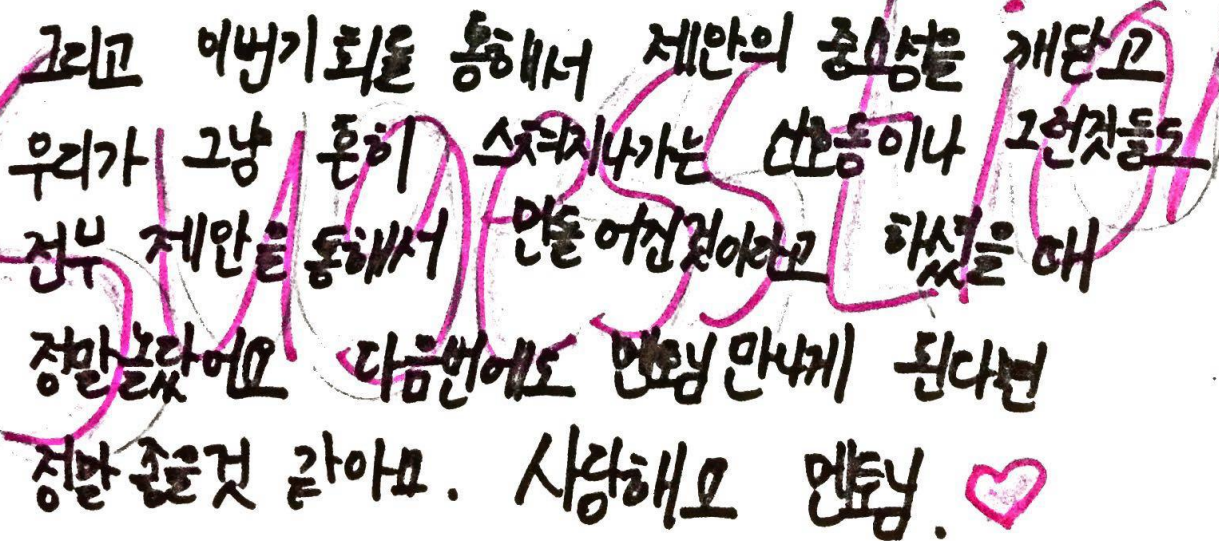 그리고 이번기회를 통해서 제안의 중요성을 깨닫고
우리가 그냥 흔히 스쳐지나가는 신호등이나 그런것들도
전부 제안을 통해서 만들어진것이라고 하셨을 때
정말놀랐어요 다음번에도 멘토님 만나게 된다면
정말 좋을것 같아요. 사랑해요 멘토님. ♡